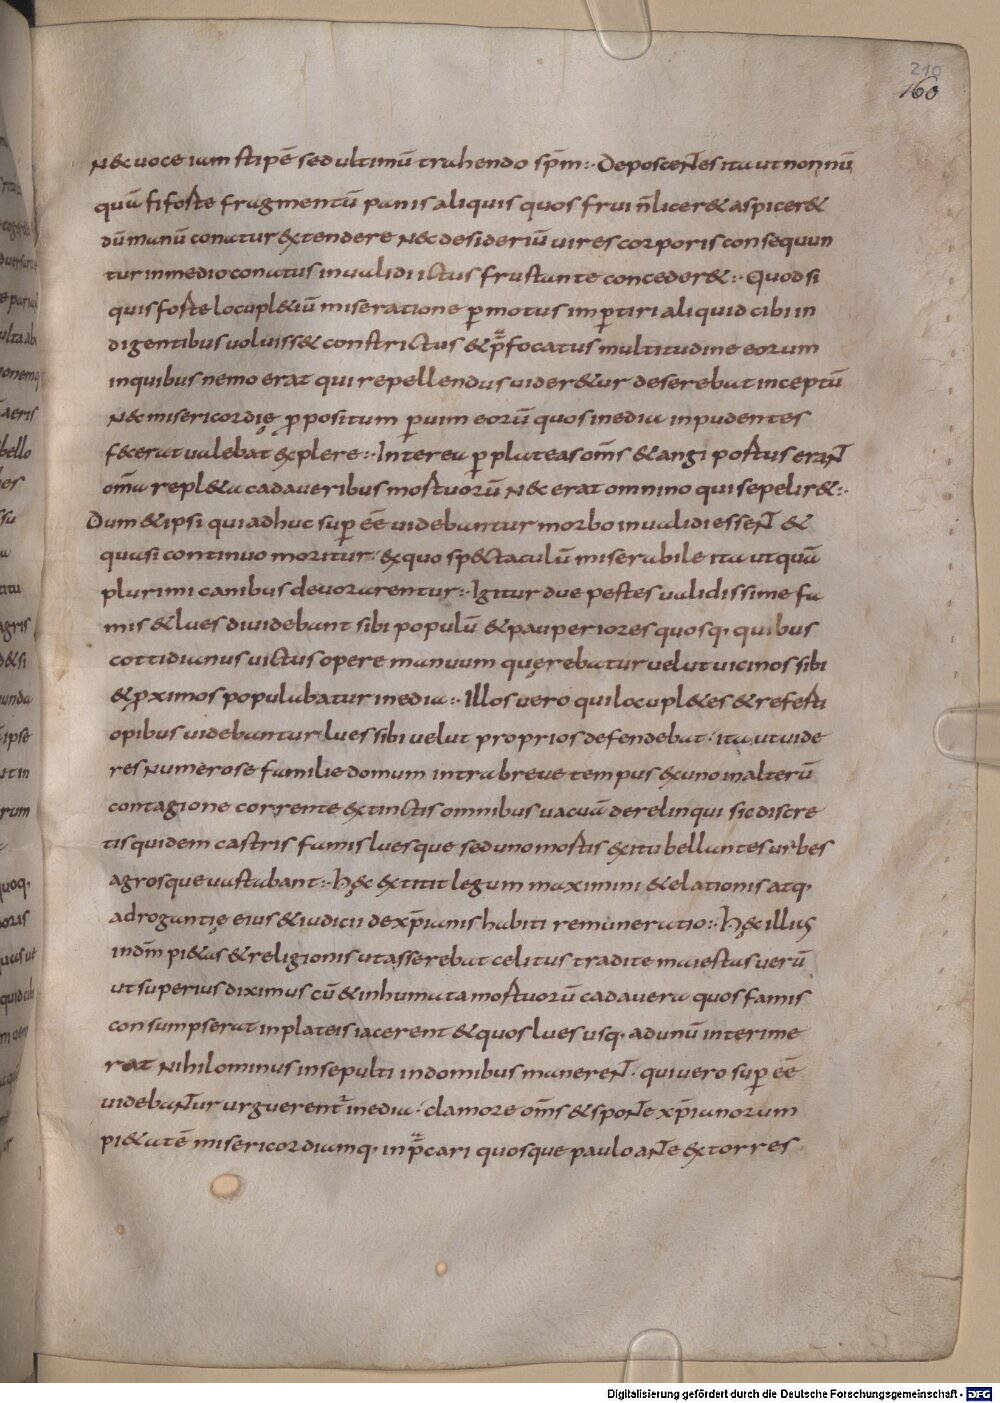 210
160
N&c uoce iam stipē sed ultimū trahendo sp̄m:· DeposceNtes ita ut non nū
quā si foste fragmentū panis aliquis quos frui n̄ licer& aspicer&
dū manū conatur &tendere N&c desideriū uires corporis consequun
tur in medio conatus inualidi ictus frustante conceder&:· Quod si
quis foste locupl&iū miseratione ꝑmotus imꝑtiri aliquid cibi in
digentibus uoluiss& constrictus & p̄focatus multitudine eorum
in quibus nemo erat qui repellendus uider&ur deserebat inceptū
N&c misericordię ꝓpositum ꝑ uim eorū quos inedia inpudentes
f&cerat ualebat &plere:· Interea ꝑ plateas om̄s & angi postus eraNt
om̄a repl&a cadaueribus mostuorū N&c erat omnino qui sepelir&:·
Dum & ipsi qui adhuc suꝑ eē̄ uidebantur morbo inualidi esseNt &
quasi continuo moritur· &quo sp&taculū miserabile ita ut quā
plurimi canibus deuorarentur:· Igitur due pestes ualidissime fa
mis & lues diuidebant sibi populū & pauperiores quosq, quibus
cottidianus uictus opere manuum quęrebatur uelut uicinos sibi
& ꝓximos populabatur inedia:· Illos uero qui locupl&es & refesti
opibus uidebantur lues sibi uelut proprios defendebat· ita ut uide
res Numerose familie domum intra breue tempus &uno in alterū
contagione corrente &tinctis omnibus uacuā derelinqui sic discre
tis quidem castris famis luesque sed uno mostis &itu bellantes urbes
agrosque uastabant:· H&c &titit legum maximini & elationis atq,
adrogantię eius & iudicii de xp̄ianis habiti remuneratio:· H&c illius
in dm̄ pi&as & religionis ut asserebat celitus tradite maiestas uerū
ut superius diximus cū & inhumata mostuorū cadauera quos famis
consumpserat in plateis iacerent & quos lues usq, ad unū interime
rat Nihilominus insepulti in domibus maneреNt· qui uero suꝑ eē̄
uidebaNtur urguerent̄ inedia· clamore om̄s & spoNte xp̄ianorum
pi&atē misericordiamq, inp̄cari quosque paulo aNte &torres
Digitalisierung gefördert durch die Deutsche Forschungsgemeinschaft - DFG